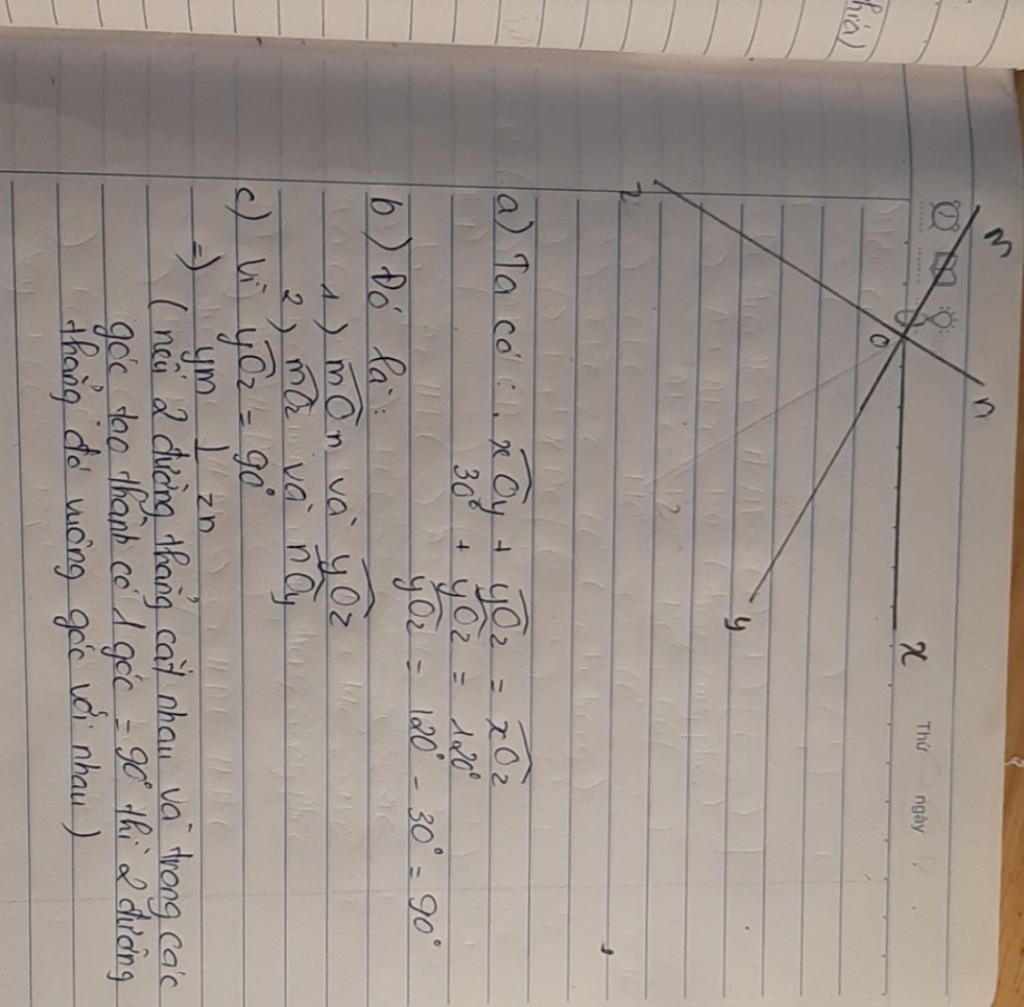 m
n
O
x
y
z
Thứ ngày
a) Ta có: xÔy + yÔz = xÔz
30° + yÔz = 120°
yÔz = 120° - 30° = 90°
b) Đó là:
1) mÔn và yÔz
2) mÔz và nÔy
c) Vì yÔz = 90°
=) ym ⊥ zn
( nếu 2 đường thẳng cắt nhau và trong các
góc tạo thành có 1 góc = 90° thì 2 đường
thẳng đó vuông góc với nhau )